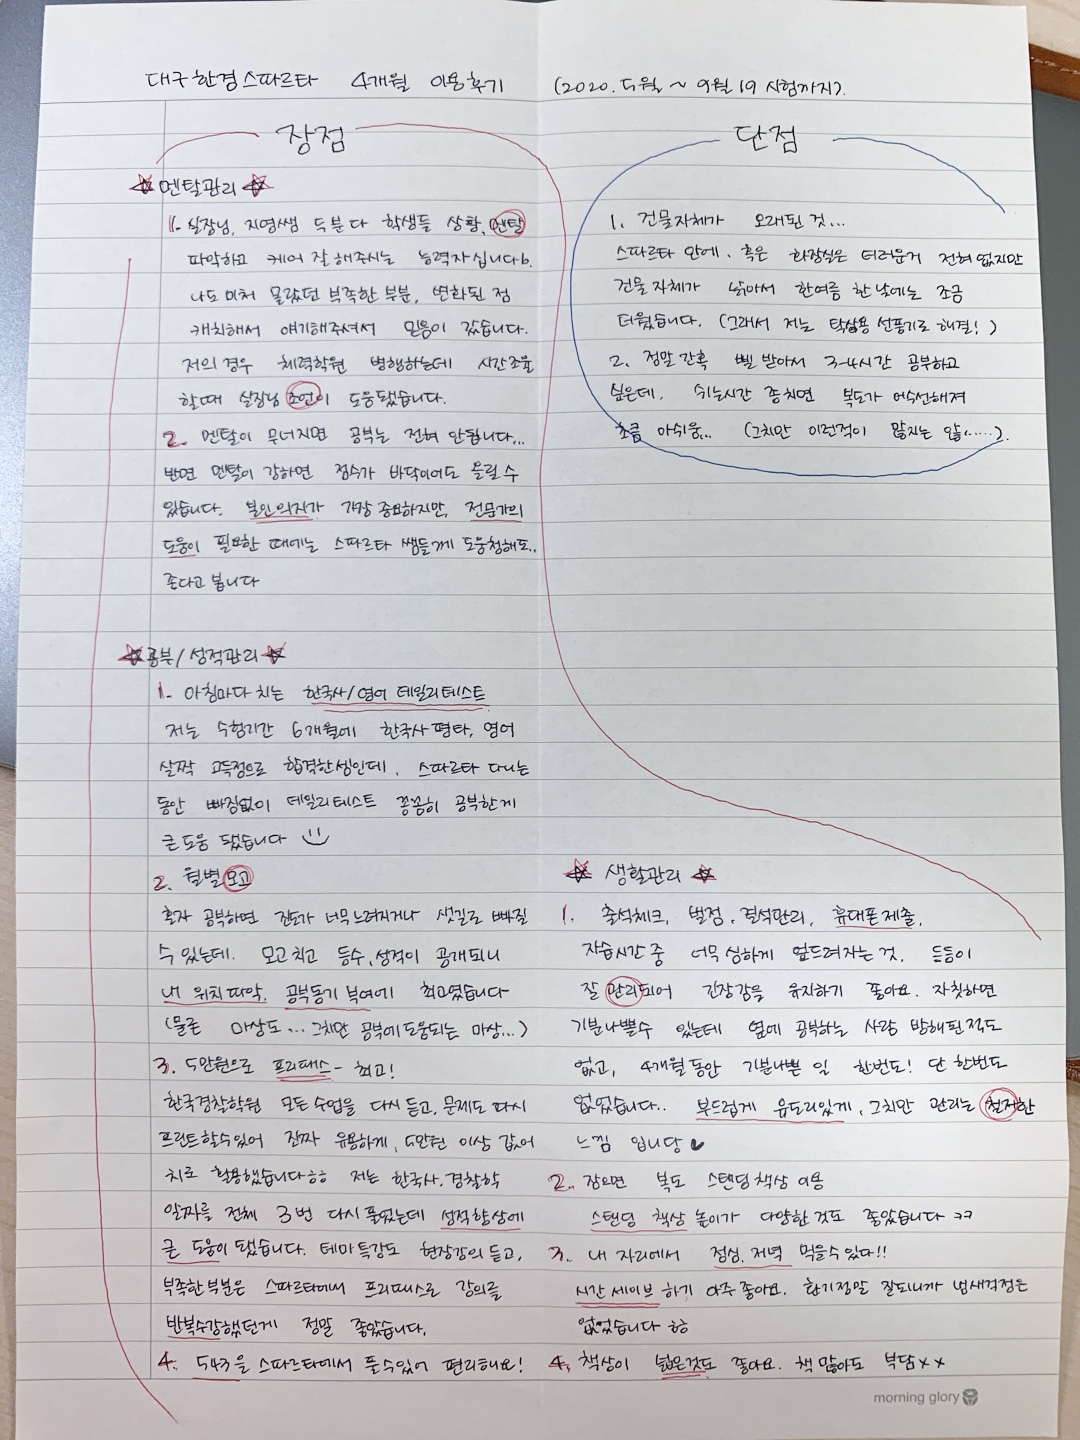 대구한경스파르타 4개월 이용후기 (2020. 5월 ~ 9월 19 시험까지).
장점
멘탈관리
1. 실장님, 지영쌤 두분 다 학생들 상황, 멘탈
파악하고 케어 잘 해주시는 능력자십니다b.
나도 미처 몰랐던 부족한 부분, 변화된 점
캐치해서 얘기해주셔서 믿음이 갔습니다.
저의 경우 체력학원 병행하는데 시간조율
할때 실장님 조언이 도움됐습니다.
2. 멘탈이 무너지면 공부는 전혀 안됩니다...
반면 멘탈이 강하면 점수가 바닥이어도 올릴 수
있습니다. 본인의지가 가장 중요하지만, 전문가의
도움이 필요한 때에는 스파르타 쌤들께 도움청해도..
좋다고 봅니다
공부/성적관리
1. 아침마다 치는 한국사/영어 데일리테스트
저는 수험기간 6개월에 한국사 평타, 영어
살짝 고득점으로 합격한셈인데, 스파르타 다니는
동안 빠짐없이 데일리테스트 꼼꼼히 공부한게
큰 도움 됐습니다
2. 월별모고
혼자 공부하면 진도가 너무느려지거나 샛길로 빠질
수 있는데. 모고치고 등수, 성적이 공개되니
내 위치파악, 공부동기 부여에 최고였습니다
(물론 마상도... 그치만 공부에도움되는 마상...)
3. 5만원으로 프리패스 - 최고!
한국경찰학원 모든 수업을 다시 듣고, 문제도 다시
프린트할수있어 진짜 유용하게, 5만원 이상 값어
치로 활용했습니다ㅎㅎ 저는 한국사, 경찰학
알짜를 전체 3번 다시 풀었는데 성적향상에
큰 도움이 됐습니다. 테마특강도 현장강의 듣고,
부족한부분은 스파르타에서 프리패스로 강의를
반복수강했던게 정말 좋았습니다.
4. 543을 스파르타에서 풀수있어 편리해요!
단점
1. 건물자체가 오래된 것...
스파르타 안에, 혹은 화장실은 더러운거 전혀 없지만
건물 자체가 낡아서 한여름 한낮에는 조금
더웠습니다. (그래서 저는 탁상용 선풍기로 해결!)
2. 정말 간혹 삘 받아서 3-4시간 공부하고
싶은데, 쉬는시간 종치면 복도가 어수선해져
조금 아쉬움... (그치만 이런적이 많지는 않.....).
생활관리
1. 출석체크, 벌점, 결석관리, 휴대폰제출,
자습시간 중 너무 심하게 엎드려자는것, 등등이
잘 관리되어 긴장감을 유지하기 좋아요. 자칫하면
기분나쁠수 있는데 옆에 공부하는 사람 방해된적도
없고, 4개월동안 기분나쁜 일 한번도! 단 한번도
없었습니다.. 부드럽게 유도리있게, 그치만 관리는 철저한
느낌 입니당
2. 잠오면 복도 스탠딩책상 이용
스탠딩 책상 높이가 다양한 것도 좋았습니다 ㅋㅋ
3. 내 자리에서 점심, 저녁 먹을수 있다!!
시간 세이브 하기 아주 좋아요. 환기정말 잘되니까 냄새걱정은
없었습니다 ㅎㅎ
4. 책상이 넓은것도 좋아요. 책 많아도 부담xx
morning glory